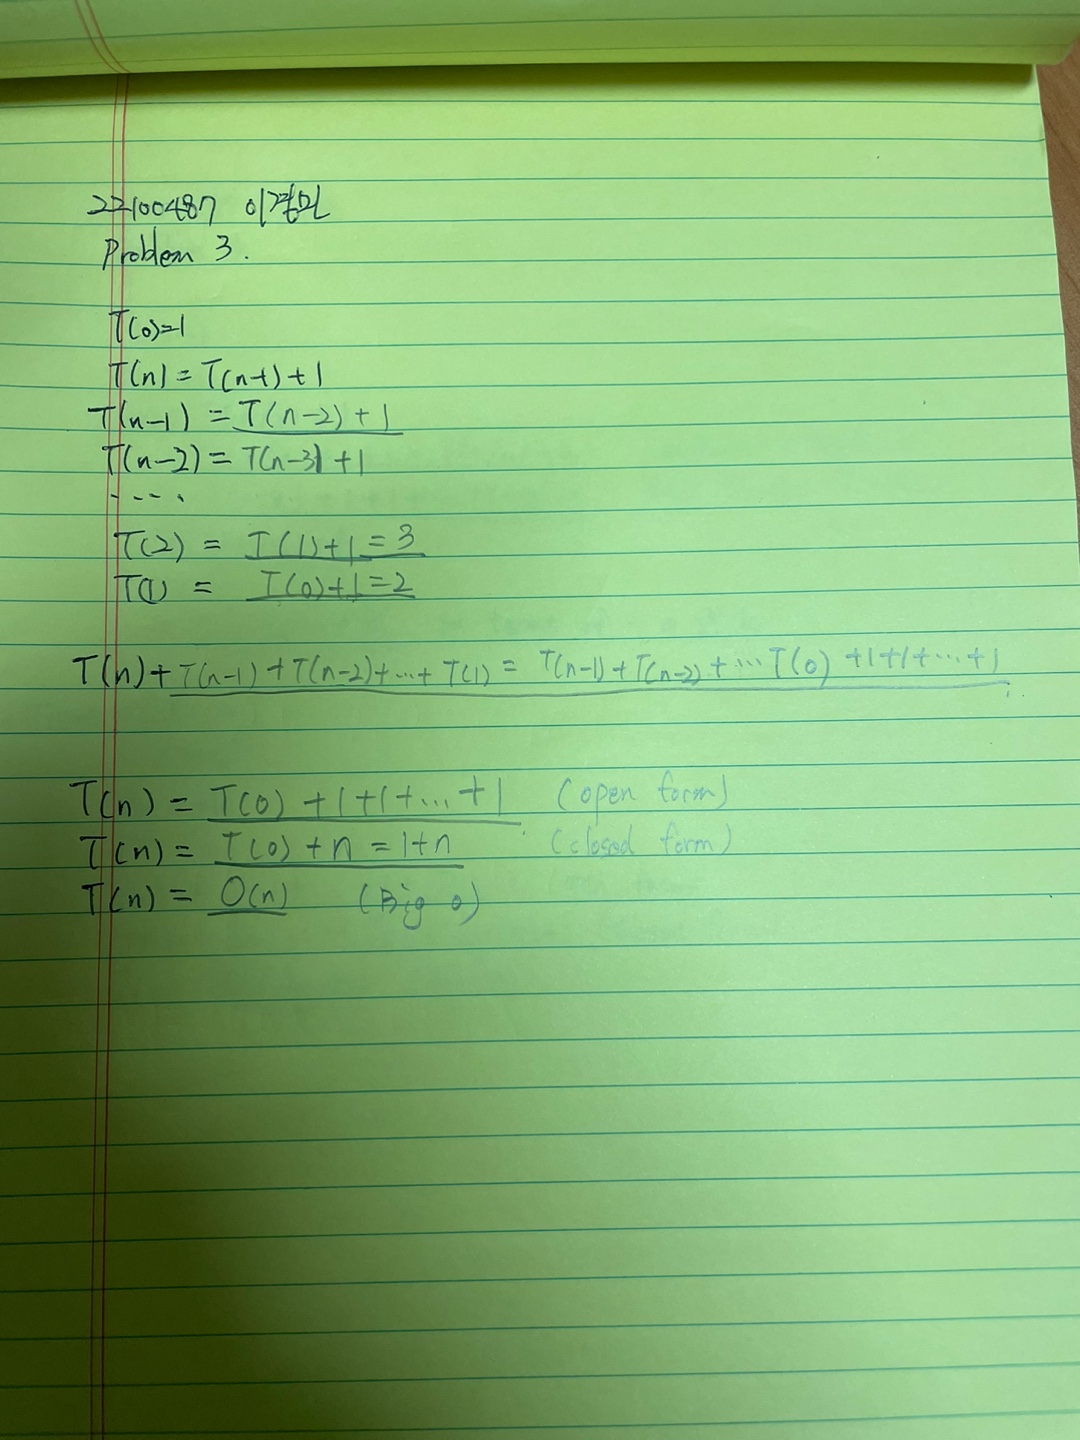 22100487 이경민
Problem 3.
T(0)=1
T(n) = T(n-1) + 1
T(n-1) = T(n-2) + 1
T(n-2) = T(n-3) + 1
....
T(2) = T(1)+1 = 3
T(1) = T(0)+1 = 2
T(n)+T(n-1)+T(n-2)+...+T(1) = T(n-1)+T(n-2)+...T(0)+1+1+...+1
T(n) = T(0)+1+1+...+1 (open form)
T(n) = T(0)+n = 1+n (closed form)
T(n) = O(n) (Big o)